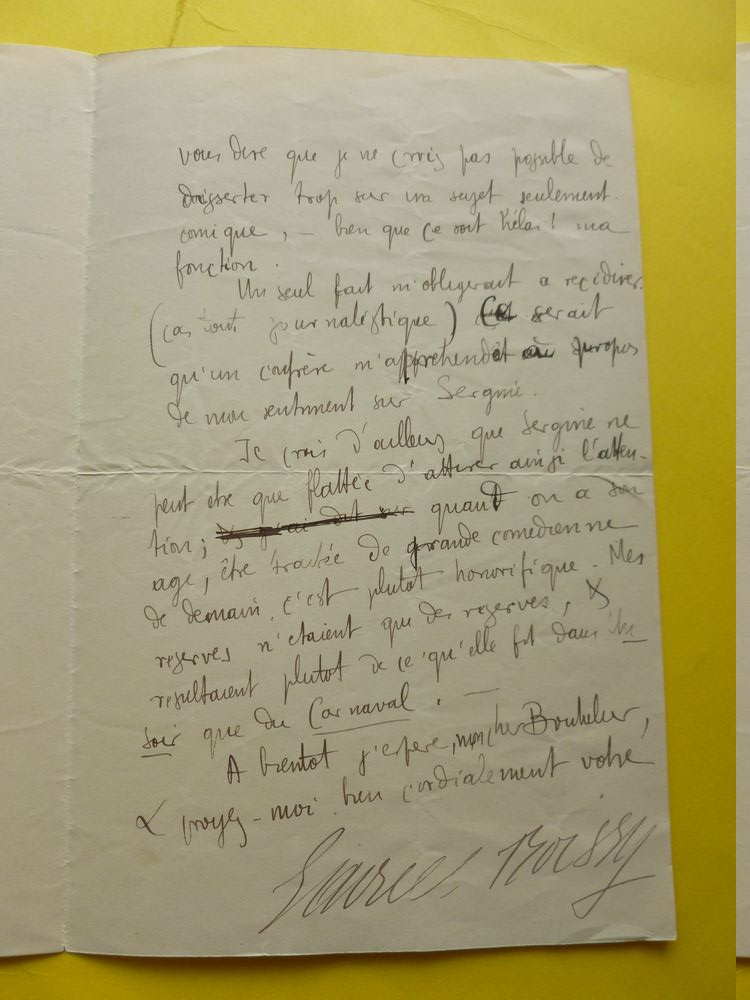 vous dire que je ne crois pas possible de
disserter trop sur un sujet seulement
comique, – bien que ce soit hélas ! ma
fonction.
Un seul fait m'obligerait a recidiver
(cas tout journalistique) ce serait
qu'un confrère m'appréhendât à propos
de mon sentiment sur Sergine.
Je crois d'ailleurs que Sergine ne
peut etre que flattée d'attirer ainsi l'atten-
tion; quand on a son
age, être traitée de grande comedienne
de demain, c'est plutot honorifique. Mes
reserves n'etaient que des reserves, &
resultaient plutot de ce qu'elle fit dans Un
soir que du Carnaval. —
A bientot j'espere, mon cher Bouhelier,
& croyez-moi bien cordialement votre
Georges Boissy